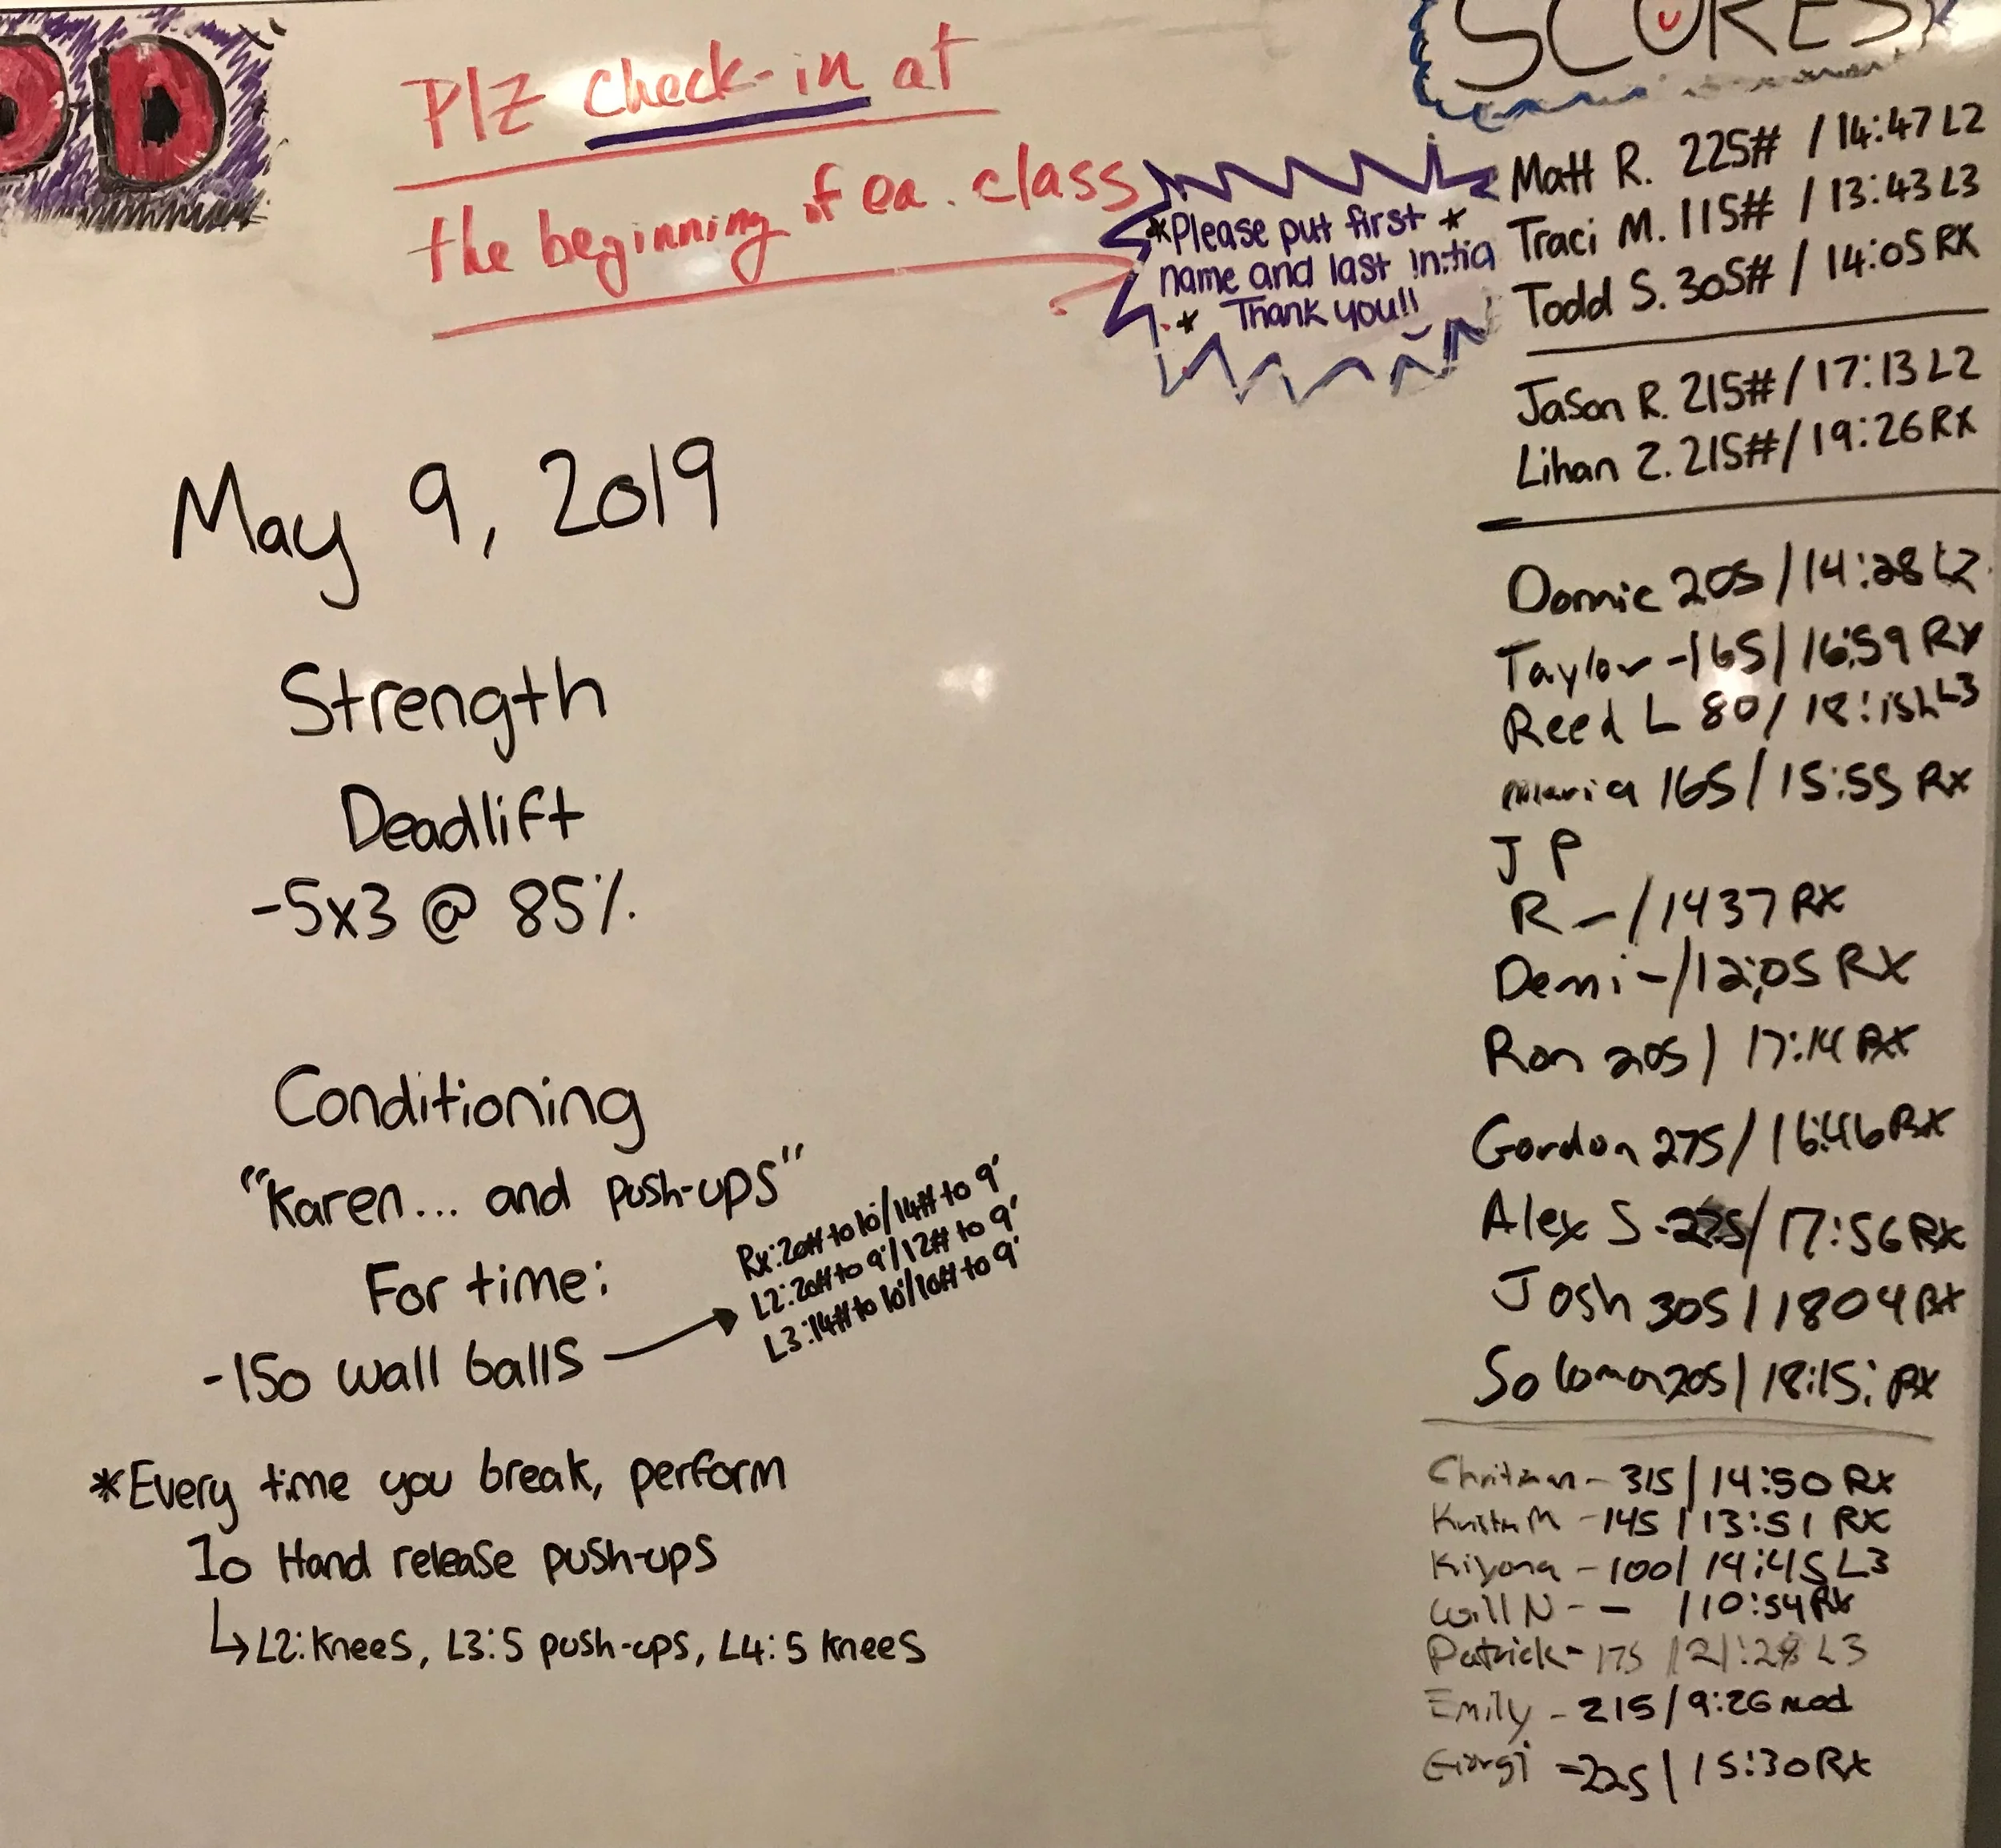 OD
Plz check-in at
the beginning of ea. class
May 9, 2019
Strength
Deadlift
-5x3 @ 85%
Conditioning
"Karen... and push-ups"
For time:
-150 wall balls
Rx: 20# to 10'/14# to 9'
L2: 20# to 9'/12# to 9'
L3: 14# to 10'/10# to 9'
*Every time you break, perform
10 Hand release push-ups
L2: Knees, L3: 5 push-ups, L4: 5 Knees
SCORES
*Please put first *
name and last initia
* Thank you!!
Matt R. 225# / 14:47 L2
Traci M. 115# / 13:43 L3
Todd S. 305# / 14:05 RX
Jason R. 215# / 17:13 L2
Lihan Z. 215# / 19:26 RX
Donnie 205 / 14:28 L2
Taylor -165 / 16:59 Rx
Reed L 80 / 18:15 L3
Maria 165 / 15:55 Rx
J P
R - / 1437 RX
Demi - / 12:05 RX
Ron 205 / 17:14 RX
Gordon 275 / 16:46 RX
Alex S - 225 / 17:56 RX
Josh 305 / 1804 RX
Soloman 205 / 18:15 RX
- 315 / 14:50 Rx
Krista M - 145 / 13:51 RX
Kiyona - 100 / 14:45 L3
Will N - - / 10:54 RX
Patrick - 175 / 21:28 L3
Emily - 215 / 9:26 mod
Giorgi - 225 / 15:30 Rx